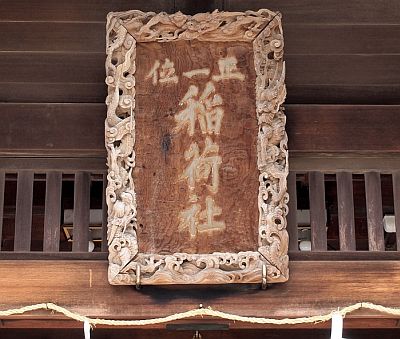 正一位
稲荷社